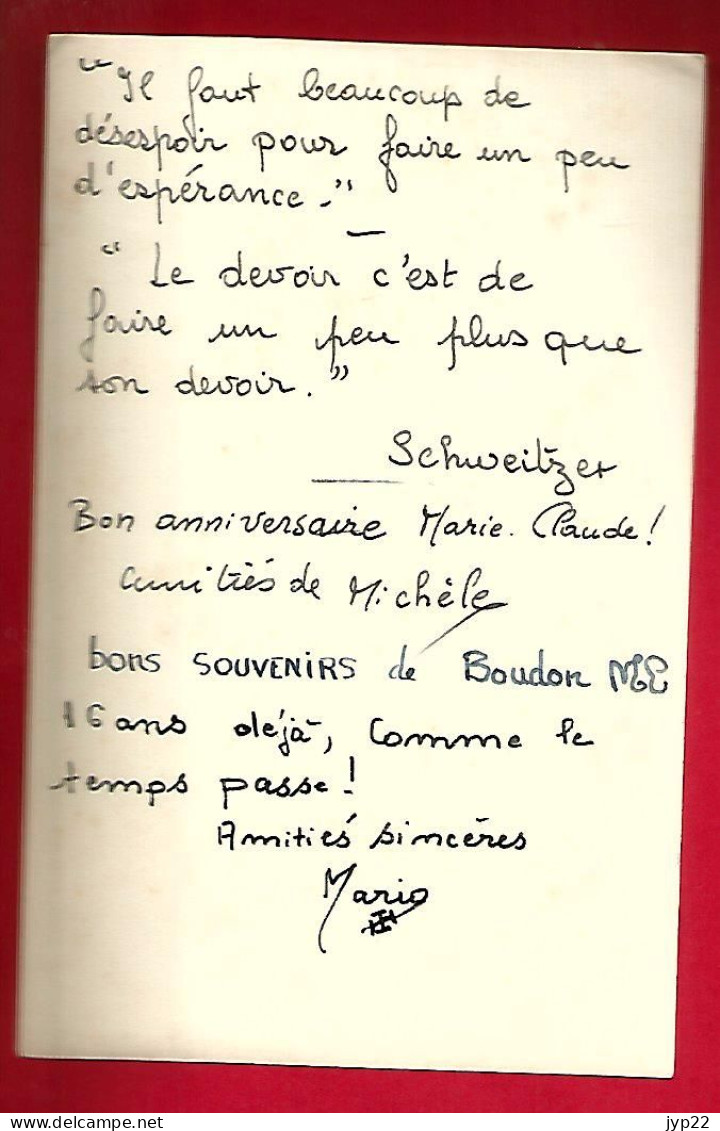 "Il faut beaucoup de
désespoir pour faire un peu
d'espérance."
"Le devoir c'est de
faire un peu plus que
son devoir."
Schweitzer
Bon anniversaire Marie-Claude!
amitiés de Michèle
bons SOUVENIRS de Boudon ME
16 ans déjà, comme le
temps passe!
Amitiés sincères
Mario
jyp22